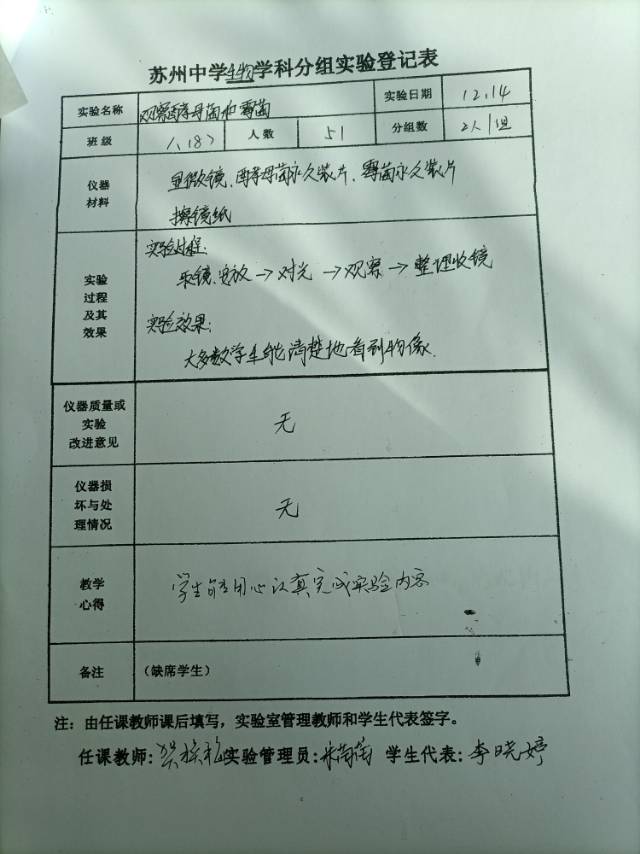 苏州中学生物学科分组实验登记表
实验名称 观察酵母菌和霉菌 实验日期 12.14
班级 八(8) 人数 51 分组数 2人/组
仪器材料 显微镜、酵母菌永久装片、霉菌永久装片
擦镜纸
实验过程及其效果 实验过程:
取镜、安放→对光→观察→整理收镜
实验效果:
大多数学生能清楚地看到物像.
仪器质量或实验改进意见 无
仪器损坏与处理情况 无
教学心得 学生能用心认真完成实验内容
备注 (缺席学生)
注:由任课教师课后填写,实验室管理教师和学生代表签字。
任课教师: 实验管理员: 学生代表:李晓婷